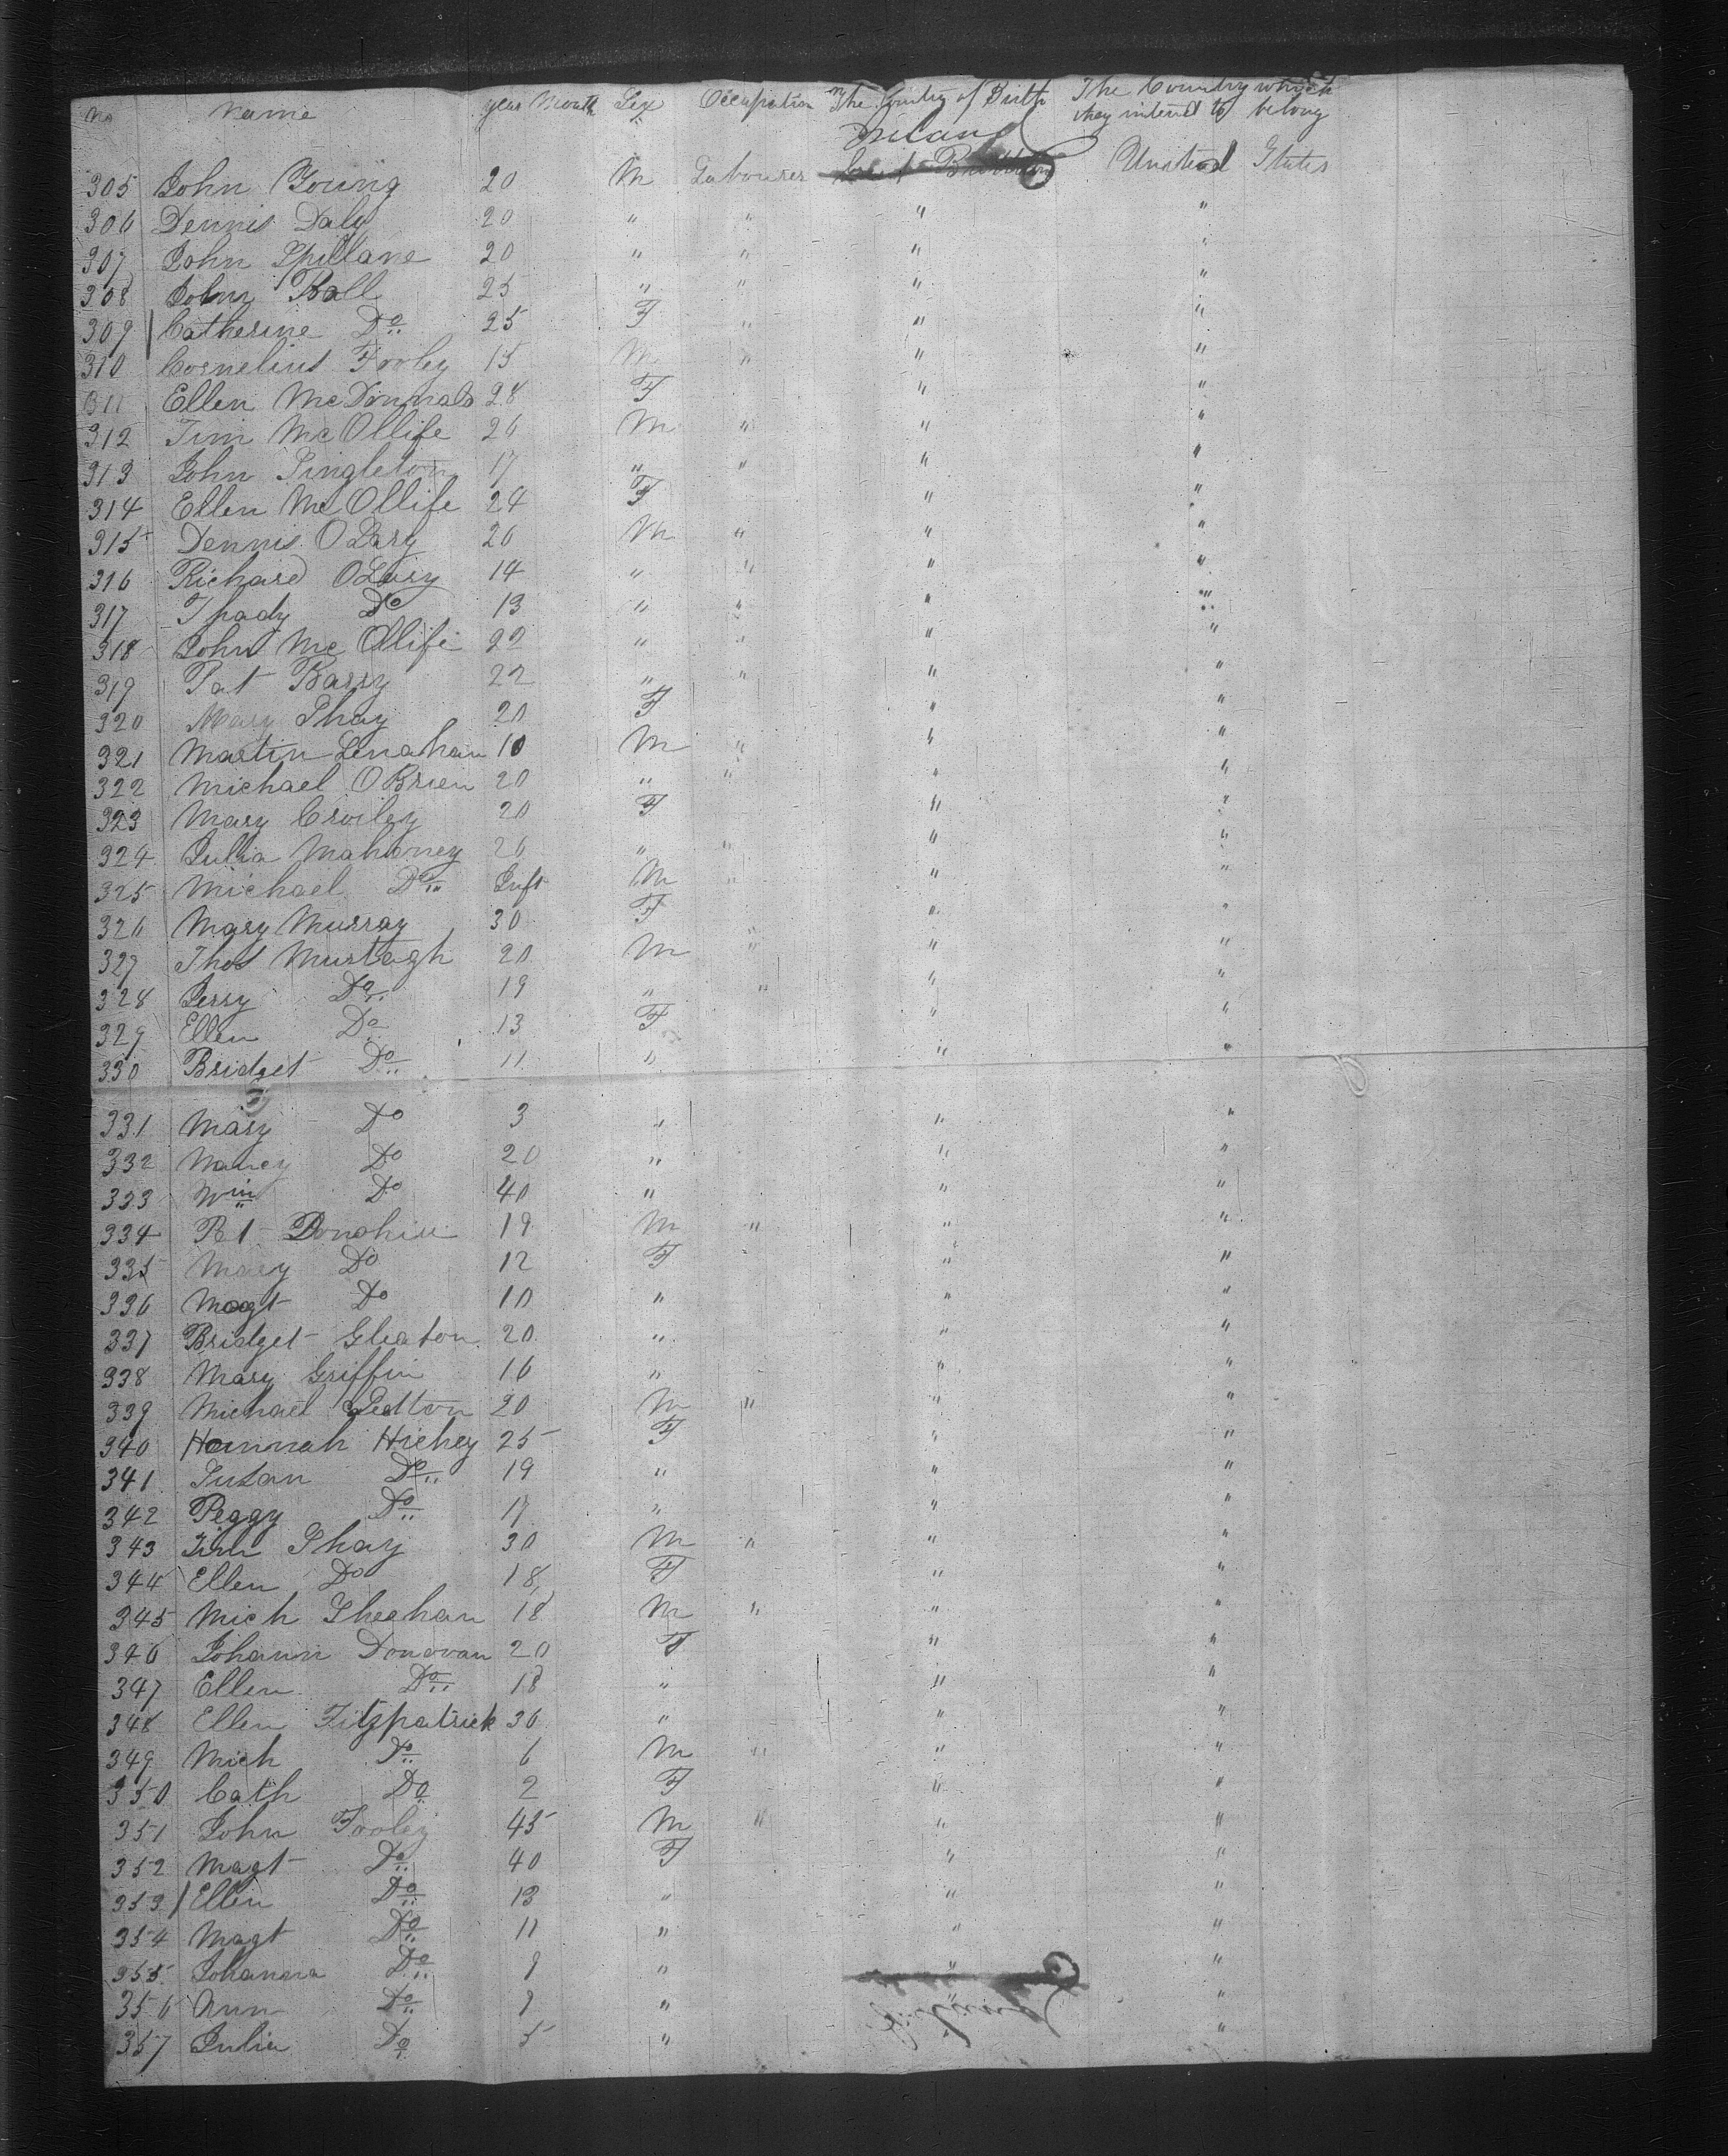 No Name year Month Sex Occupation The Country of Birth The Country which
they intend to belong
Ireland
305 John Young 20 M Labourer Great Brittain United States
306 Dennis Daly 20 " " " "
307 John Spillane 20 " " " "
308 John Ball 25 " " " "
309 Catherine Do 25 F " " "
310 Cornelius Fooley 15 M " " "
311 Ellen McDonnald 28 F " "
312 Tim McOllife 26 M " " "
313 John Singleton 17 " " " "
314 Ellen McOllife 24 F " "
315 Dennis OLary 26 M " " "
316 Richard OLary 14 " " " "
317 Thady Do 13 " " " "
318 John McOllife 22 " " " "
319 Pat Barry 22 " " " "
320 Mary Shay 20 F " "
321 Martin Lenahan 10 M " " "
322 Michael OBrien 20 " " " "
323 Mary Croiley 20 F " "
324 Julia Mahoney 26 " " " "
325 Michael Do Inft M " " "
326 Mary Murray 30 F " "
327 Thos Murtagh 20 M " " "
328 Jerry Do 19 " " " "
329 Ellen Do 13 F " "
330 Bridget Do 11 " " "
331 Mary Do 3 " " "
332 Nancy Do 20 " " "
333 Win Do 40 " " "
334 Pat Donohue 19 M " " "
335 Mary Do 12 F " "
336 Magt Do 10 " " "
337 Bridget Gleaton 20 " " "
338 Mary Griffin 16 " " "
339 Michael 20 M " " "
340 Hannah Hickey 25 F " "
341 Susan Do 19 " " "
342 Peggy Do 17 " " "
343 Tim Shay 30 M " " "
344 Ellen Do 18 F " "
345 Mich Sheahan 18 M " " "
346 Johann Donovan 20 F " "
347 Ellen Do 18 " " "
348 Ellen Fitzpatrick 36 " " "
349 Mich Do 6 M " " "
350 Cath Do 2 F " "
351 John Fooley 45 M " " "
352 Magt Do 40 F " "
353 Ellen Do 13 " " "
354 Magt Do 11 " " "
355 Johanna Do 9 " " "
356 Ann Do 9 " " "
357 Julia Do 5 " " "